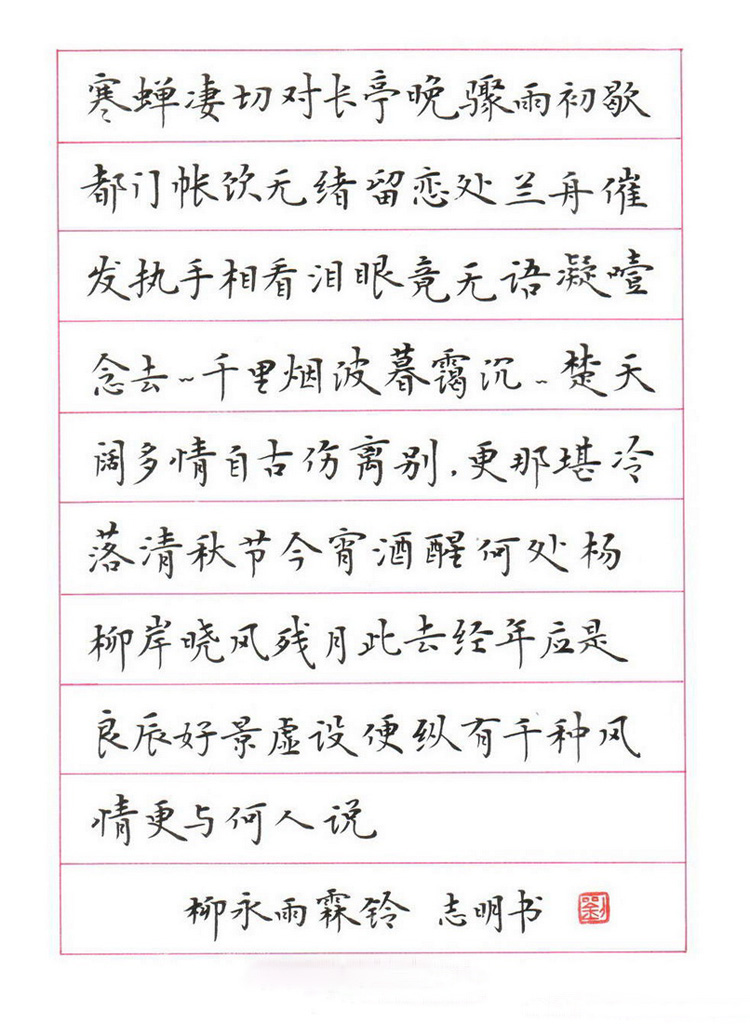 寒蝉凄切对长亭晚骤雨初歇
都门帐饮无绪留恋处兰舟催
发执手相看泪眼竟无语凝噎
念去~千里烟波暮霭沉~楚天
阔多情自古伤离别,更那堪冷
落清秋节今宵酒醒何处杨
柳岸晓风残月此去经年应是
良辰好景虚设便纵有千种风
情更与何人说
柳永雨霖铃 志明书 劉